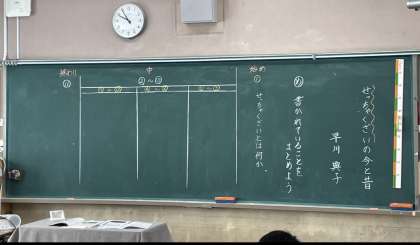 せっちゃくざいの今と昔
早川 典子
め 書かれていることを
まとめよう
始め
①
せっちゃくざいとは何か。
中
②～⑩
終わり
⑪